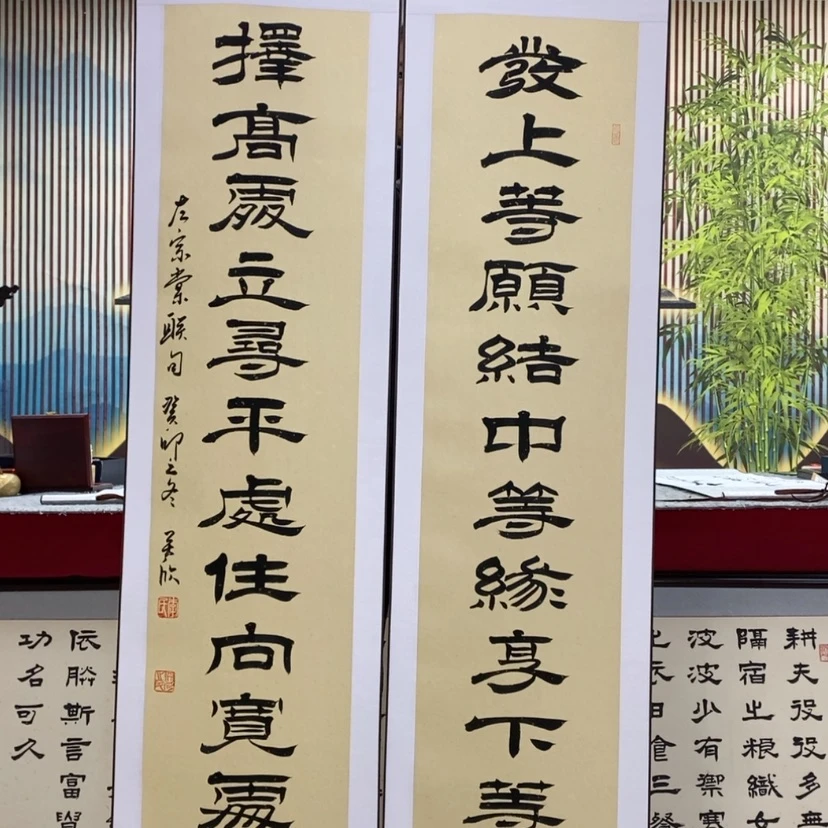 發上等願結中等緣享下等
擇高處立尋平處住向寬處
左宗棠聯句 癸卯之冬
耕夫役役多無
隔宿之粮織女
波波少有禦寒
之衣日食三餐
依朕斯言富貴
功名可久